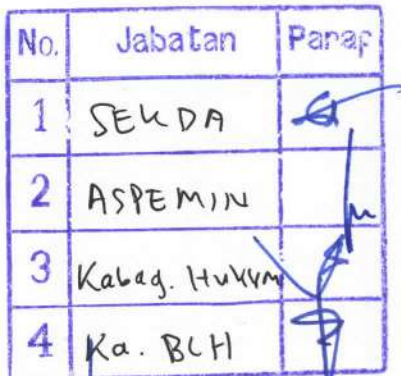 No. Jabatan Paraf
1 SEKDA
2 ASPEMIN
3 Kabag. Hukum
4 Ka. BLH